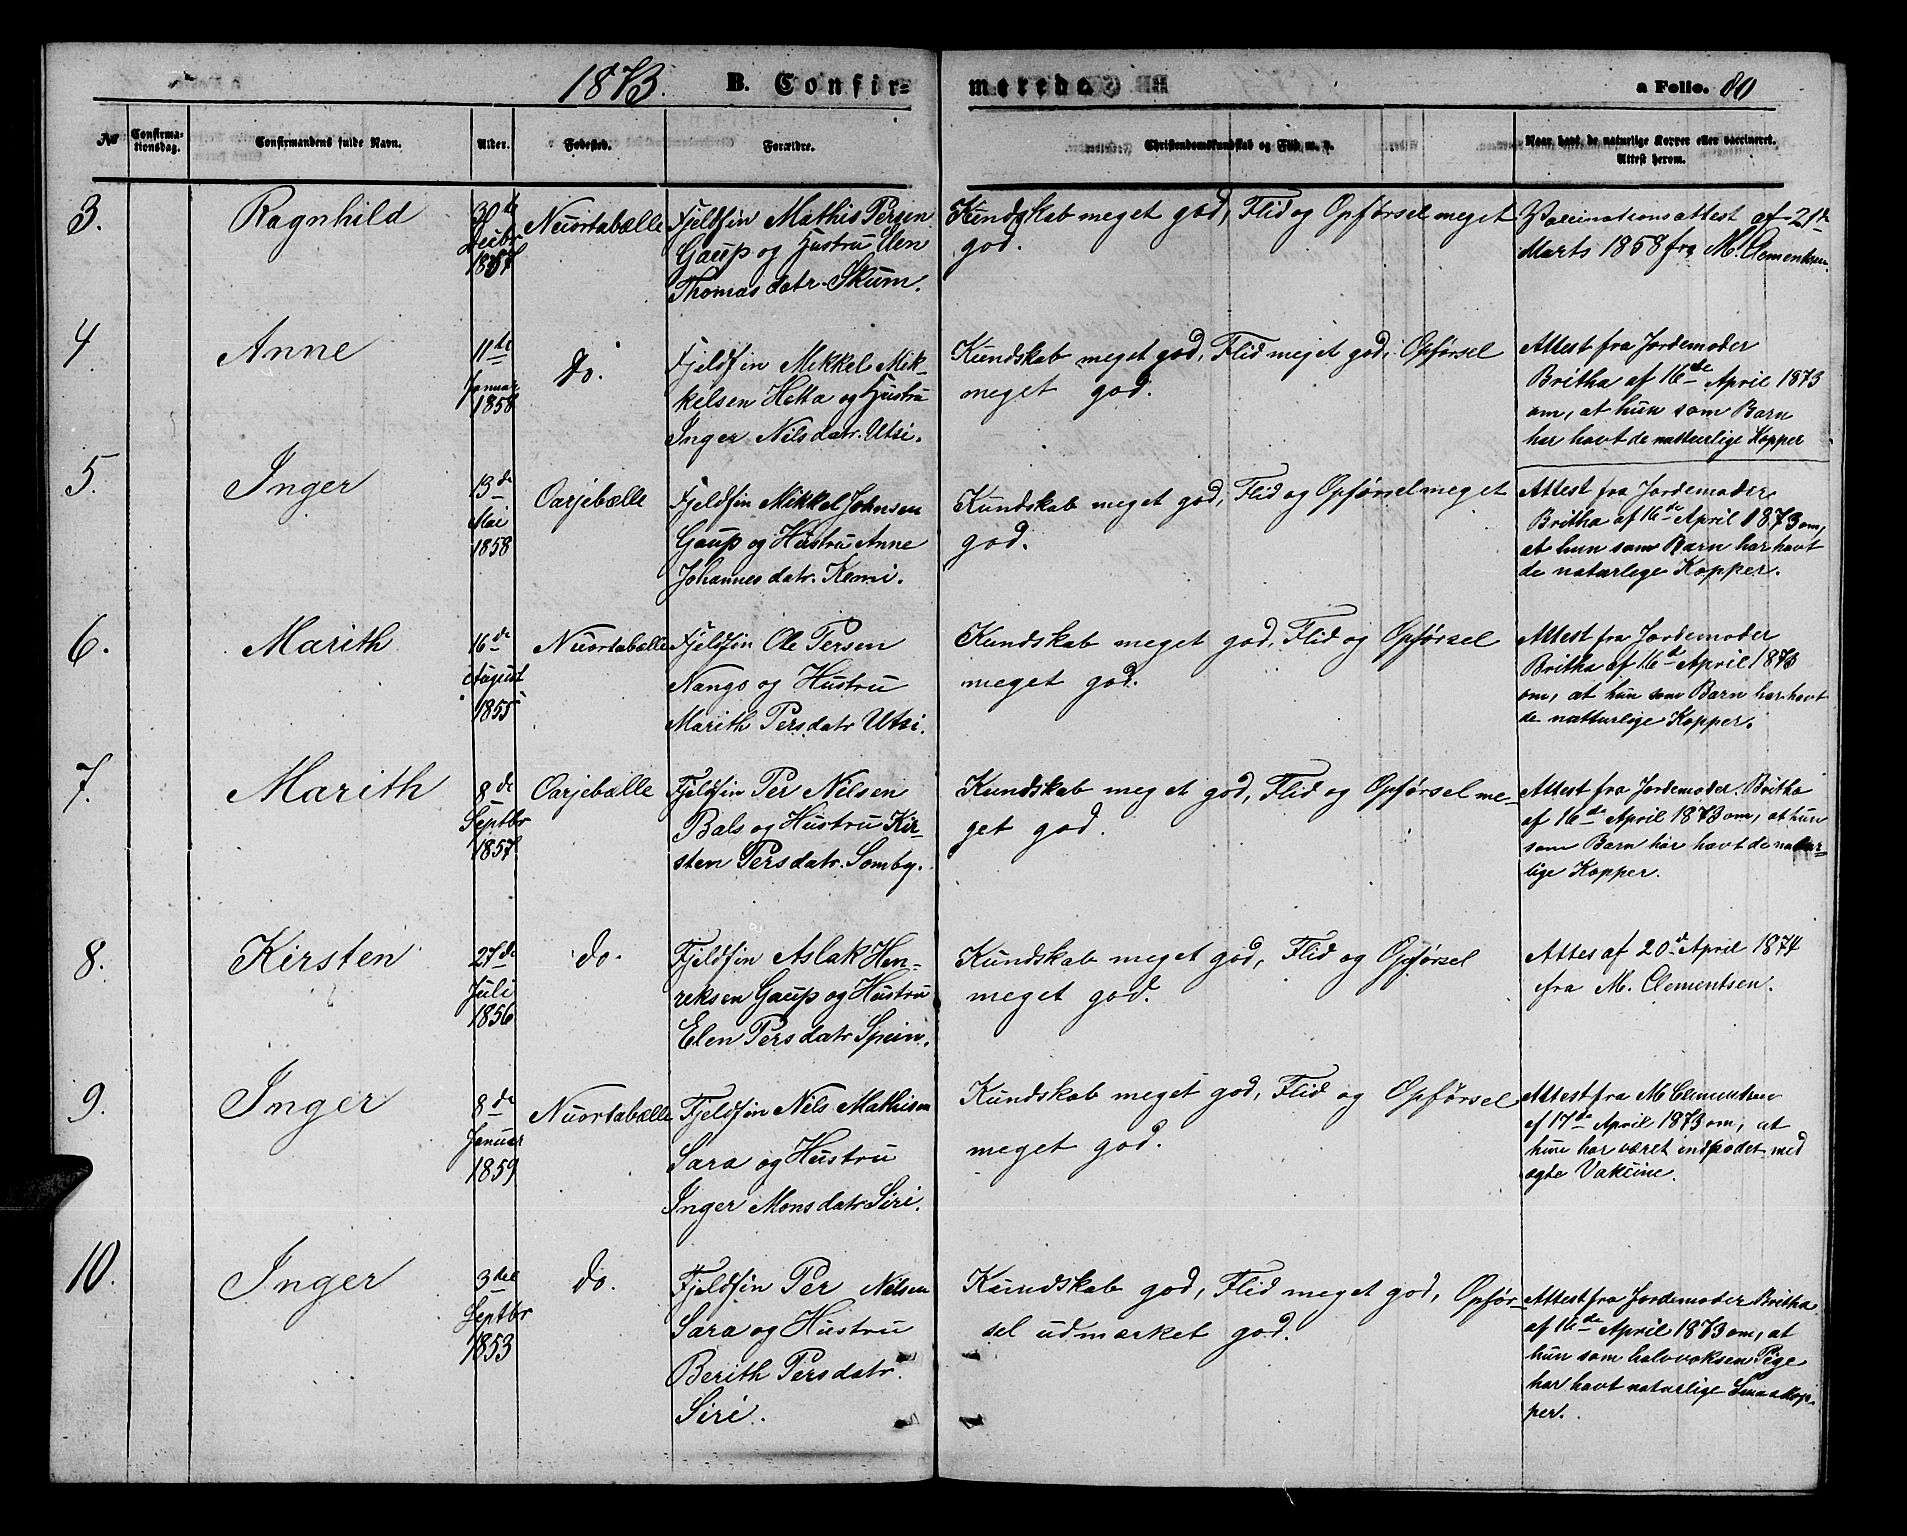 1873. B. Confirmerede. a Folio. 80
No
Confirmationsdag.
Confirmandens fulde Navn.
Alder.
Fødested.
Forældre.
Christendomskundskab og Flid m. v.
Naar havt de naturlige Kopper eller vaccineret. Attest herom.
3.
Ragnhild
30de
Decbr
1857
Nuortabælle
Fjeldfin Mathis Persen
Gaup og Hustru Elen
Thomasdatr. Skum.
Kundskab meget god, Flid og Opførsel meget
god.
Vaccinationsattest af 21de
Marts 1858 fra M. Clementsen.
4.
Anne
11te
Januar
1858
do.
Fjeldfin Mikkel Mik-
kelsen Hetta og Hustru
Inger Nilsdatr. Utsi.
Kundskab meget god, Flid meget god, Opførsel
meget god.
Attest fra Jordemoder
Britha af 16de April 1873
om, at hun som Barn
har havt de naturlige Kopper
5.
Inger
13de
Mai
1858
Oarjebælle
Fjeldfin Mikkel Johnsen
Gaup og Hustru Anne
Johannesdatr. Kemi.
Kundskab meget god, Flid og Opførsel meget
god.
Attest fra Jordemoder
Britha af 16de April 1873 om,
at hun som Barn har havt
de naturlige Kopper.
6.
Marith
16de
August
1855
Nuortabælle
Fjeldfin Ole Persen
Nango og Hustru
Marith Persdatr Utsi.
Kundskab meget god, Flid og Opførsel
meget god.
Attest fra Jordemoder
Britha af 16de April 1873
om, at hun som Barn har havt
de natturlige Kopper.
7.
Marith
8de
Septbr
1857
Oarjebælle
Fjeldfin Per Nilsen
Bals og Hustru Kir-
sten Persdatr. Somby.
Kundskab meget god, Flid og Opførsel me-
get god.
Attest fra Jordemoder Britha
af 16de April 1873 om, at hun
som Barn har havt de natur-
lige Kopper.
8.
Kirsten
27de
Juli
1856
do.
Fjeldfin Aslak Hen-
reksen Gaup og Hustru
Elen Persdatr Spein.
Kundskab meget god, Flid og Opførsel
meget god.
Attes af 20d April 1874
fra M. Clementsen.
9.
Inger
8de
Januar
1859
Nuortabælle
Fjeldfin Nils Mathisen
Sara og Hustru
Inger Monsdatr Siri.
Kundskab meget god, Flid og Opførsel
meget god.
Attest fra M Clementsen
af 17de April 1873 om, at
hun har været indpodet med
ægte Vakcine.
10.
Inger
3die
Septbr
1853
do.
Fjeldfin Per Nilsen
Sara og Hustru
Berith Persdatr.
Siri.
Kundskab god, Flid meget god, Opfør-
sel udmærket god.
Attest fra Jordemoder Britha
af 16de April 1873 om, at
hun som halvvoksen Pige
har havt naturlige Smaakop-
per.